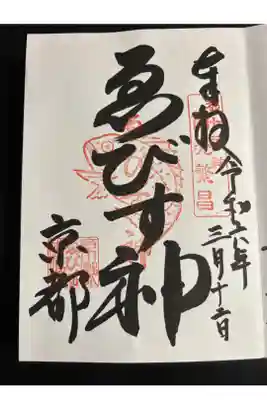 奉拝 令和六年
三月十二日
繁昌
ゑびす神
京都